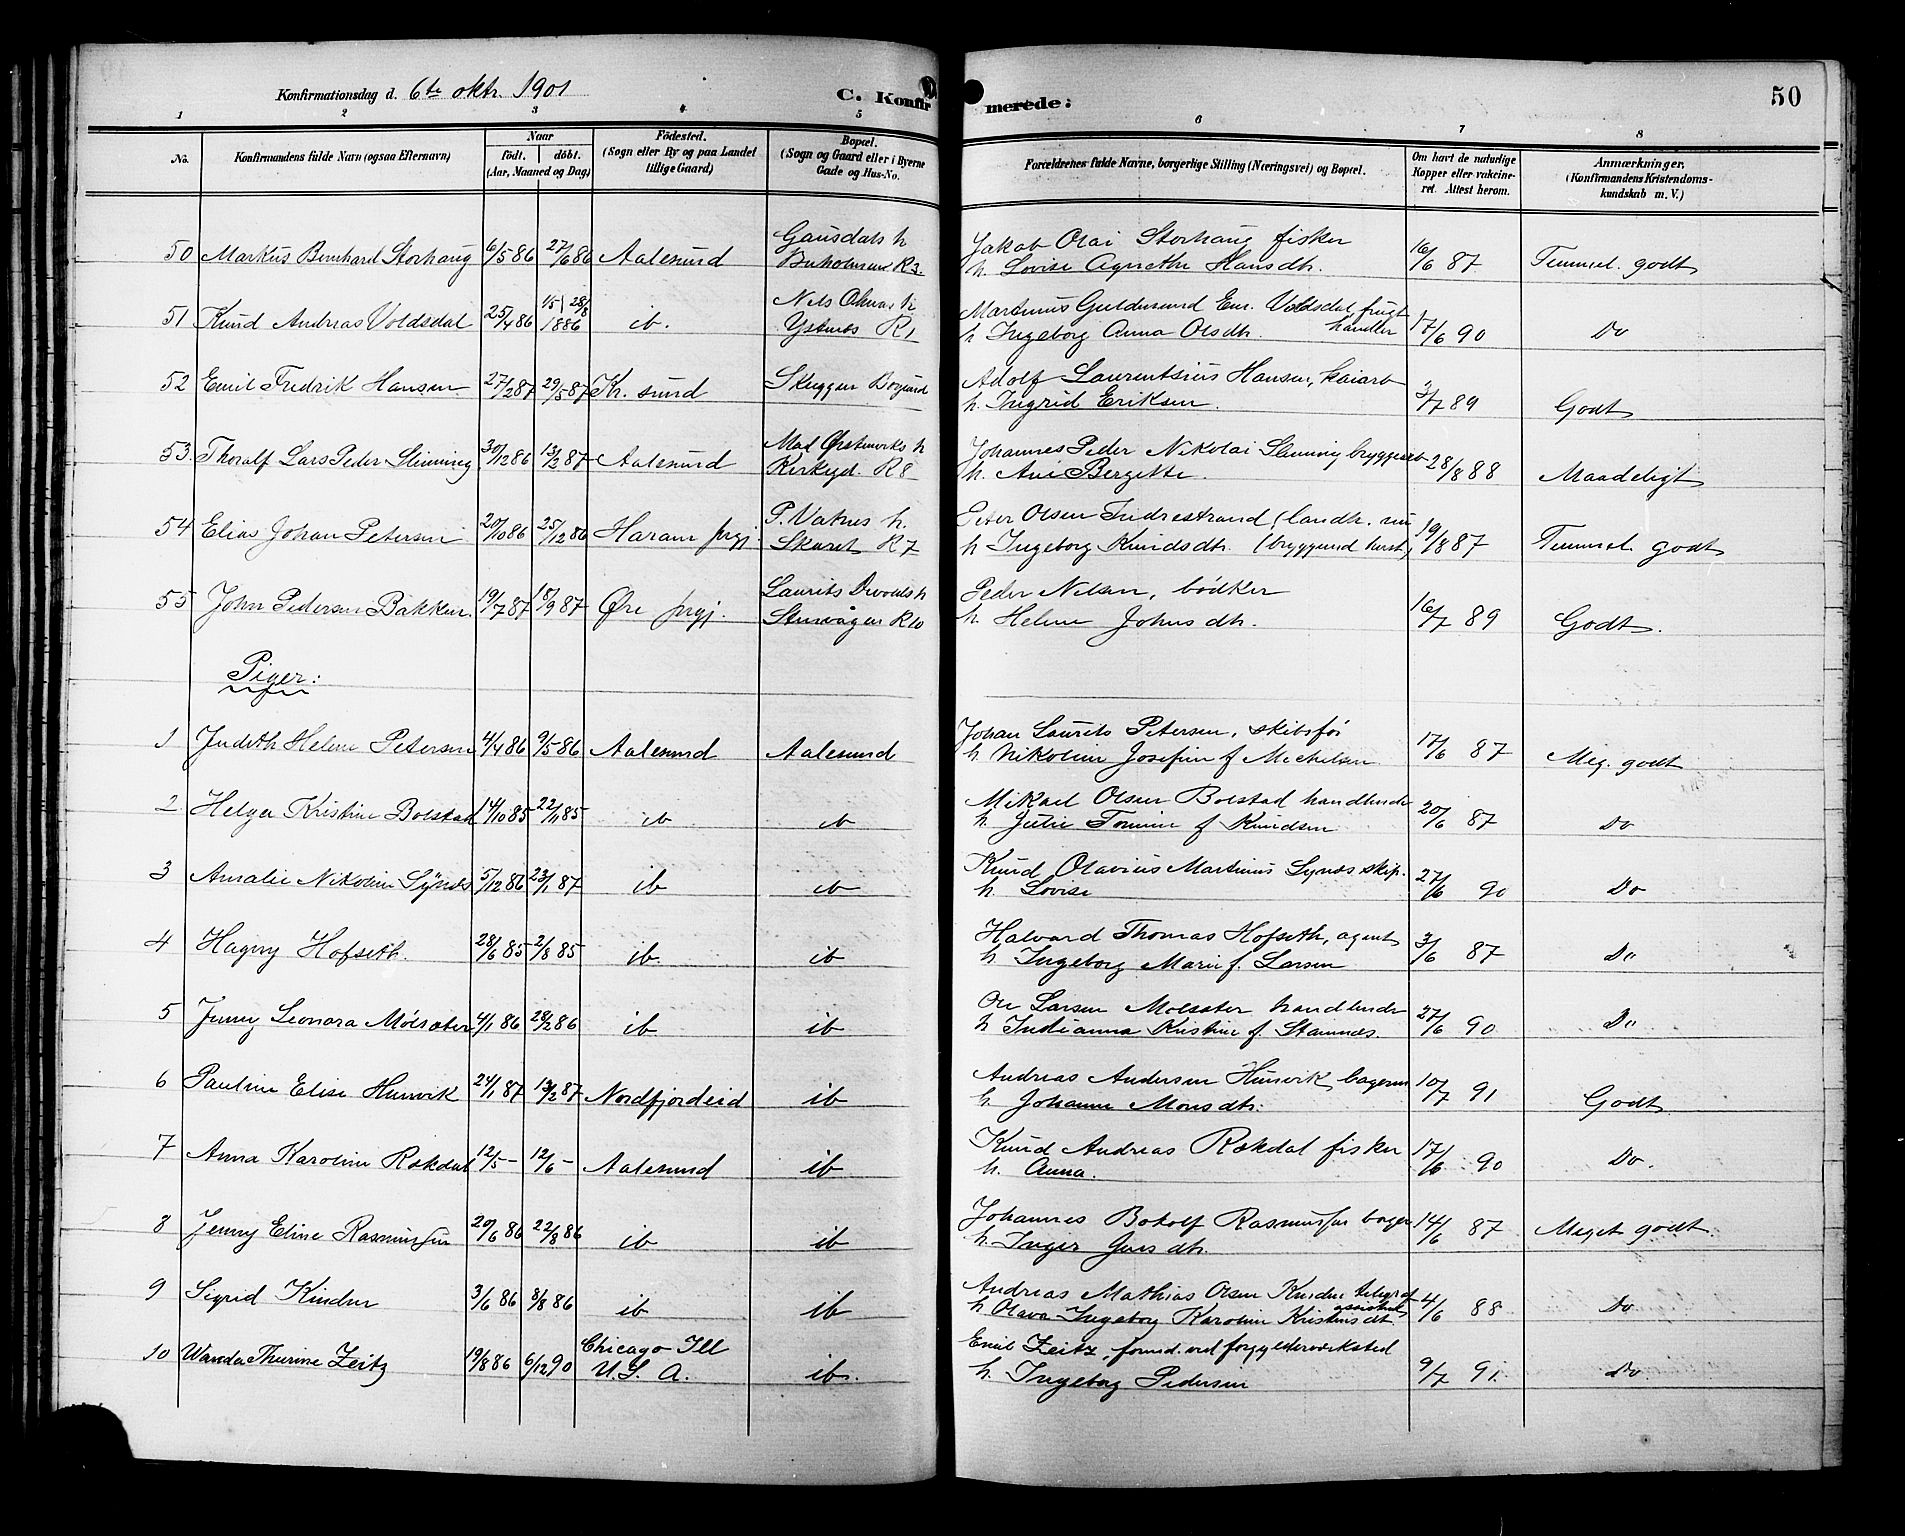 Konfirmationsdag d. 6te oktr. 1901
C. Konfirmerede:
50
1 2 3 4 5 6 7 8
No. Konfirmandens fulde Navn (ogsaa Efternavn) Naar födt. döbt. (Aar, Maaned og Dag) Födested. (Sogn eller By og paa Landet tillige Gaard) Bopæl. (Sogn og Gaard eller i Byerne Gade og Hus-No. Forældrenes fulde Navne, borgerlige Stilling (Næringsvei) og Bopæl. Om havt de naturlige Kopper eller vakcineret. Attest herom. Anmærkninger. (Konfirmandens Kristendomskundskab m. V.)
50 Markus Bernhard Storhaug 6/5 86 27/6 86 Aalesund Gausdals h Buholmen R3 Jakob Olai Storhaug fisker
h. Lovise Agnethe Hansdh. 16/6 87 Temmel. godt
51 Knud Andreas Voldsdal 25/4 86 15/ 28/8 1886 ib. Nels h Ystnes R1 Martinus Guldesund Voldsdal, frugt
h Ingeborg Anna Olsdh. handler 17/6 90 Do
52 Emil Fredrik Hansen 27/2 87 29/5 87 Kr. sund Skuggen Borgund Adolf Laurentsius Hansen, kaiarb
h. Ingrid Eriksen. 3/7 89 Godt
53. Thoralf Lars Peder Slinning 30/12 86 13/2 87 Aalesund Mad Ørstenviks h Kirkegd. R8 Johannes Peder Nikolai Slinning bryggearb
h. Ane Bergette. 28/8 88 Maadeligt
54 Elias Johan Petersen 20/10 86 25/12 86 Haram prgj. P. Vatnes h. Skaret R7 Peter Olsen Indrestrand (landh. nu
h Ingeborg Knudsdh. 19/8 87 Temmel. godt
55 John Pedersen Bakken 19/7 87 18/9 87 Øre prgj. Laurits Devolds h Stenvågen R10 Peder Nelsen, bödker
h. Helene Johnsdh. 16/7 89 Godt.
Piger:
1 Judith Helene Petersen 4/4 86 9/5 86 Aalesund Aalesund Johan Laurits Petersen, skibsfø
h. Nikoline Josefine f Mechelsen 17/6 87 Meg. godt
2 Helga Kristine Bolstad 14/10 85 22/11 85 ib ib Mikael Olsen Bolstad handlende
h. Julie Tomine f Knudsen 20/6 87 Do
3 Amalie Nikoline Synes 5/12 86 23/1 87 ib ib Knud Olavius Martinus Synes skip.
h. Lovise 27/6 90 Do
4 Hagny Hofseth. 28/6 85 2/8 85 ib. ib Halvard Thomas Hofseth, agent
h Ingeborg Marie f. Larsen 3/6 87 Do
5 Jenny Leonora Mölsæter 4/1 86 28/2 86 ib ib Ole Larsen Molsæter handlende
h Indianna Kristine f. Stamnæs. 27/6 90 Do
6 Pauline Elise Hunvik 24/1 87 13/2 87 Nordfjordeid ib Andreas Andersen Hunvik bagerm
h. Johanne Monsdh. 10/7 91 Godt
7 Anna Karoline Rækdal 12/5 - 12/6 - Aalesund ib Knud Andreas Rækdal fisker
h. Anna. 17/6 90 Do.
8 Jenny Eline Rasmussen 20/6 86 22/8 86 ib ib Johannes Botolf Rasmussen bager
h. Inger Jensdh. 14/6 87 Meget godt.
9 Sigrid Kinden 3/6 86 8/8 86 ib ib Andreas Mathias Olsen Kinden telegraf
h Olava Ingeborg Karoline Kristensdt. assistent 4/6 88 Do
10 Wanda Thurine Zeitz 19/8 86 6/12 90 Chicago Ill U. S. A. ib. Emil Zeitz, formd. ved forgylderværksted
h. Ingeborg Pedersen 9/7 91. Do